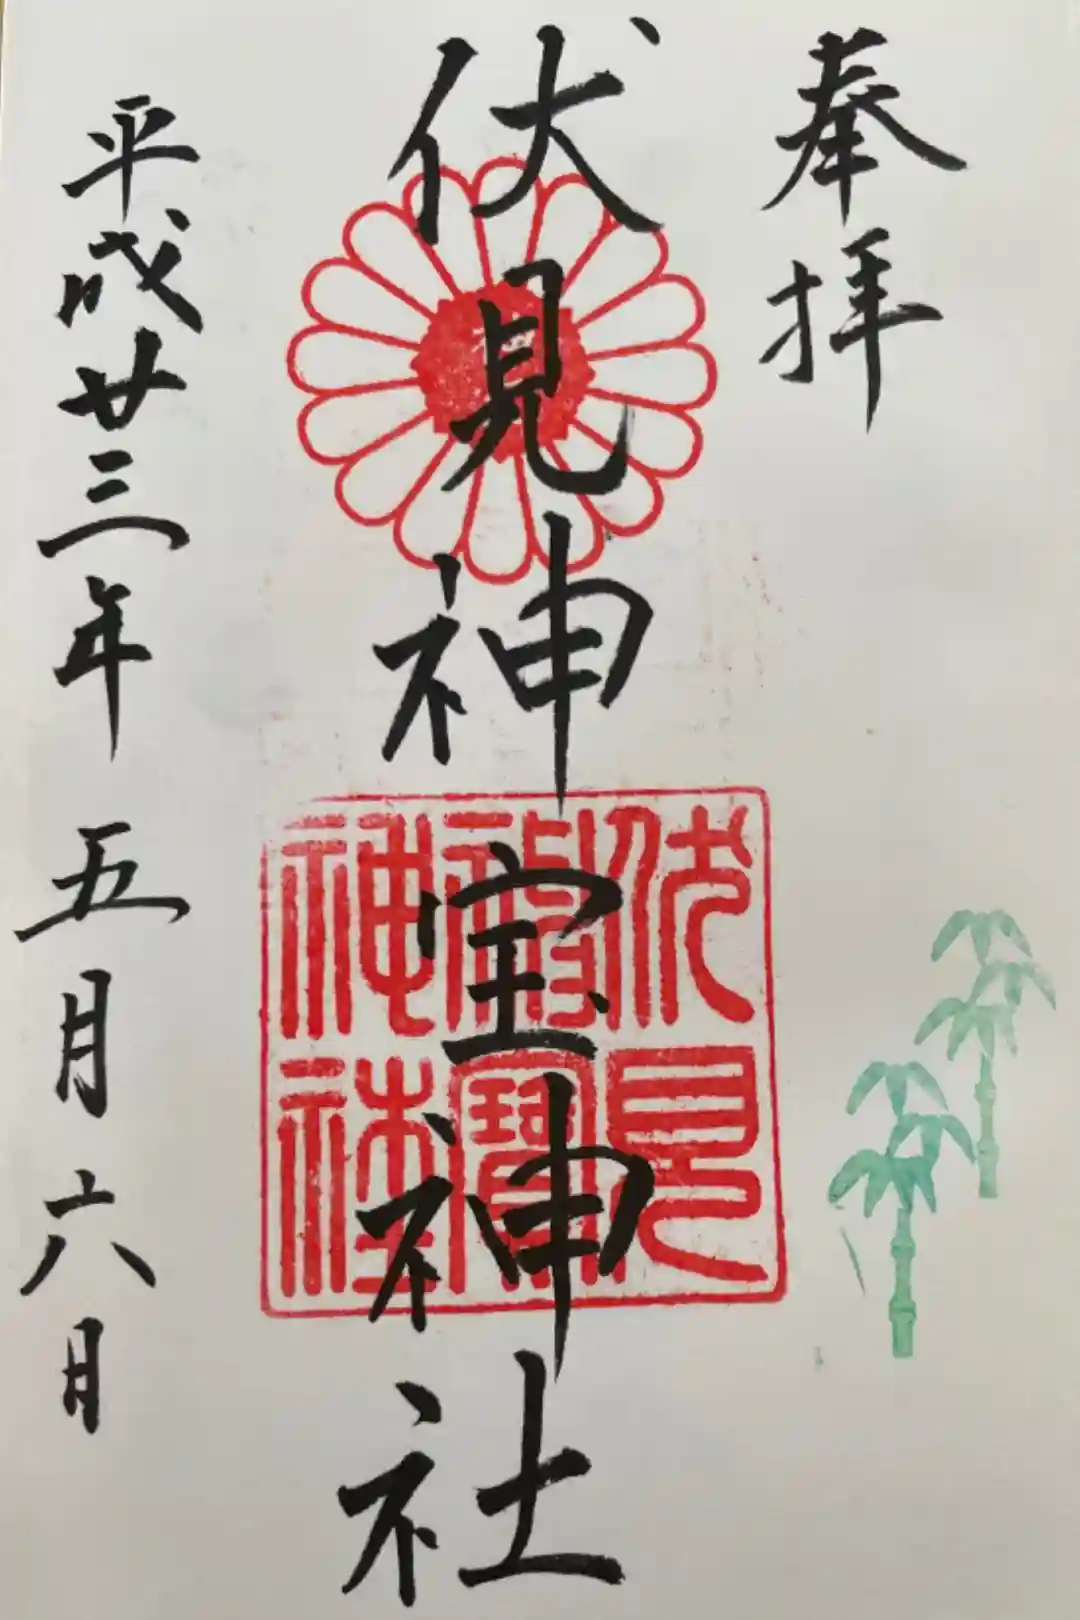 奉拝
伏見神宝神社
伏見
神寶
神社
平成廿三年 五月 六日